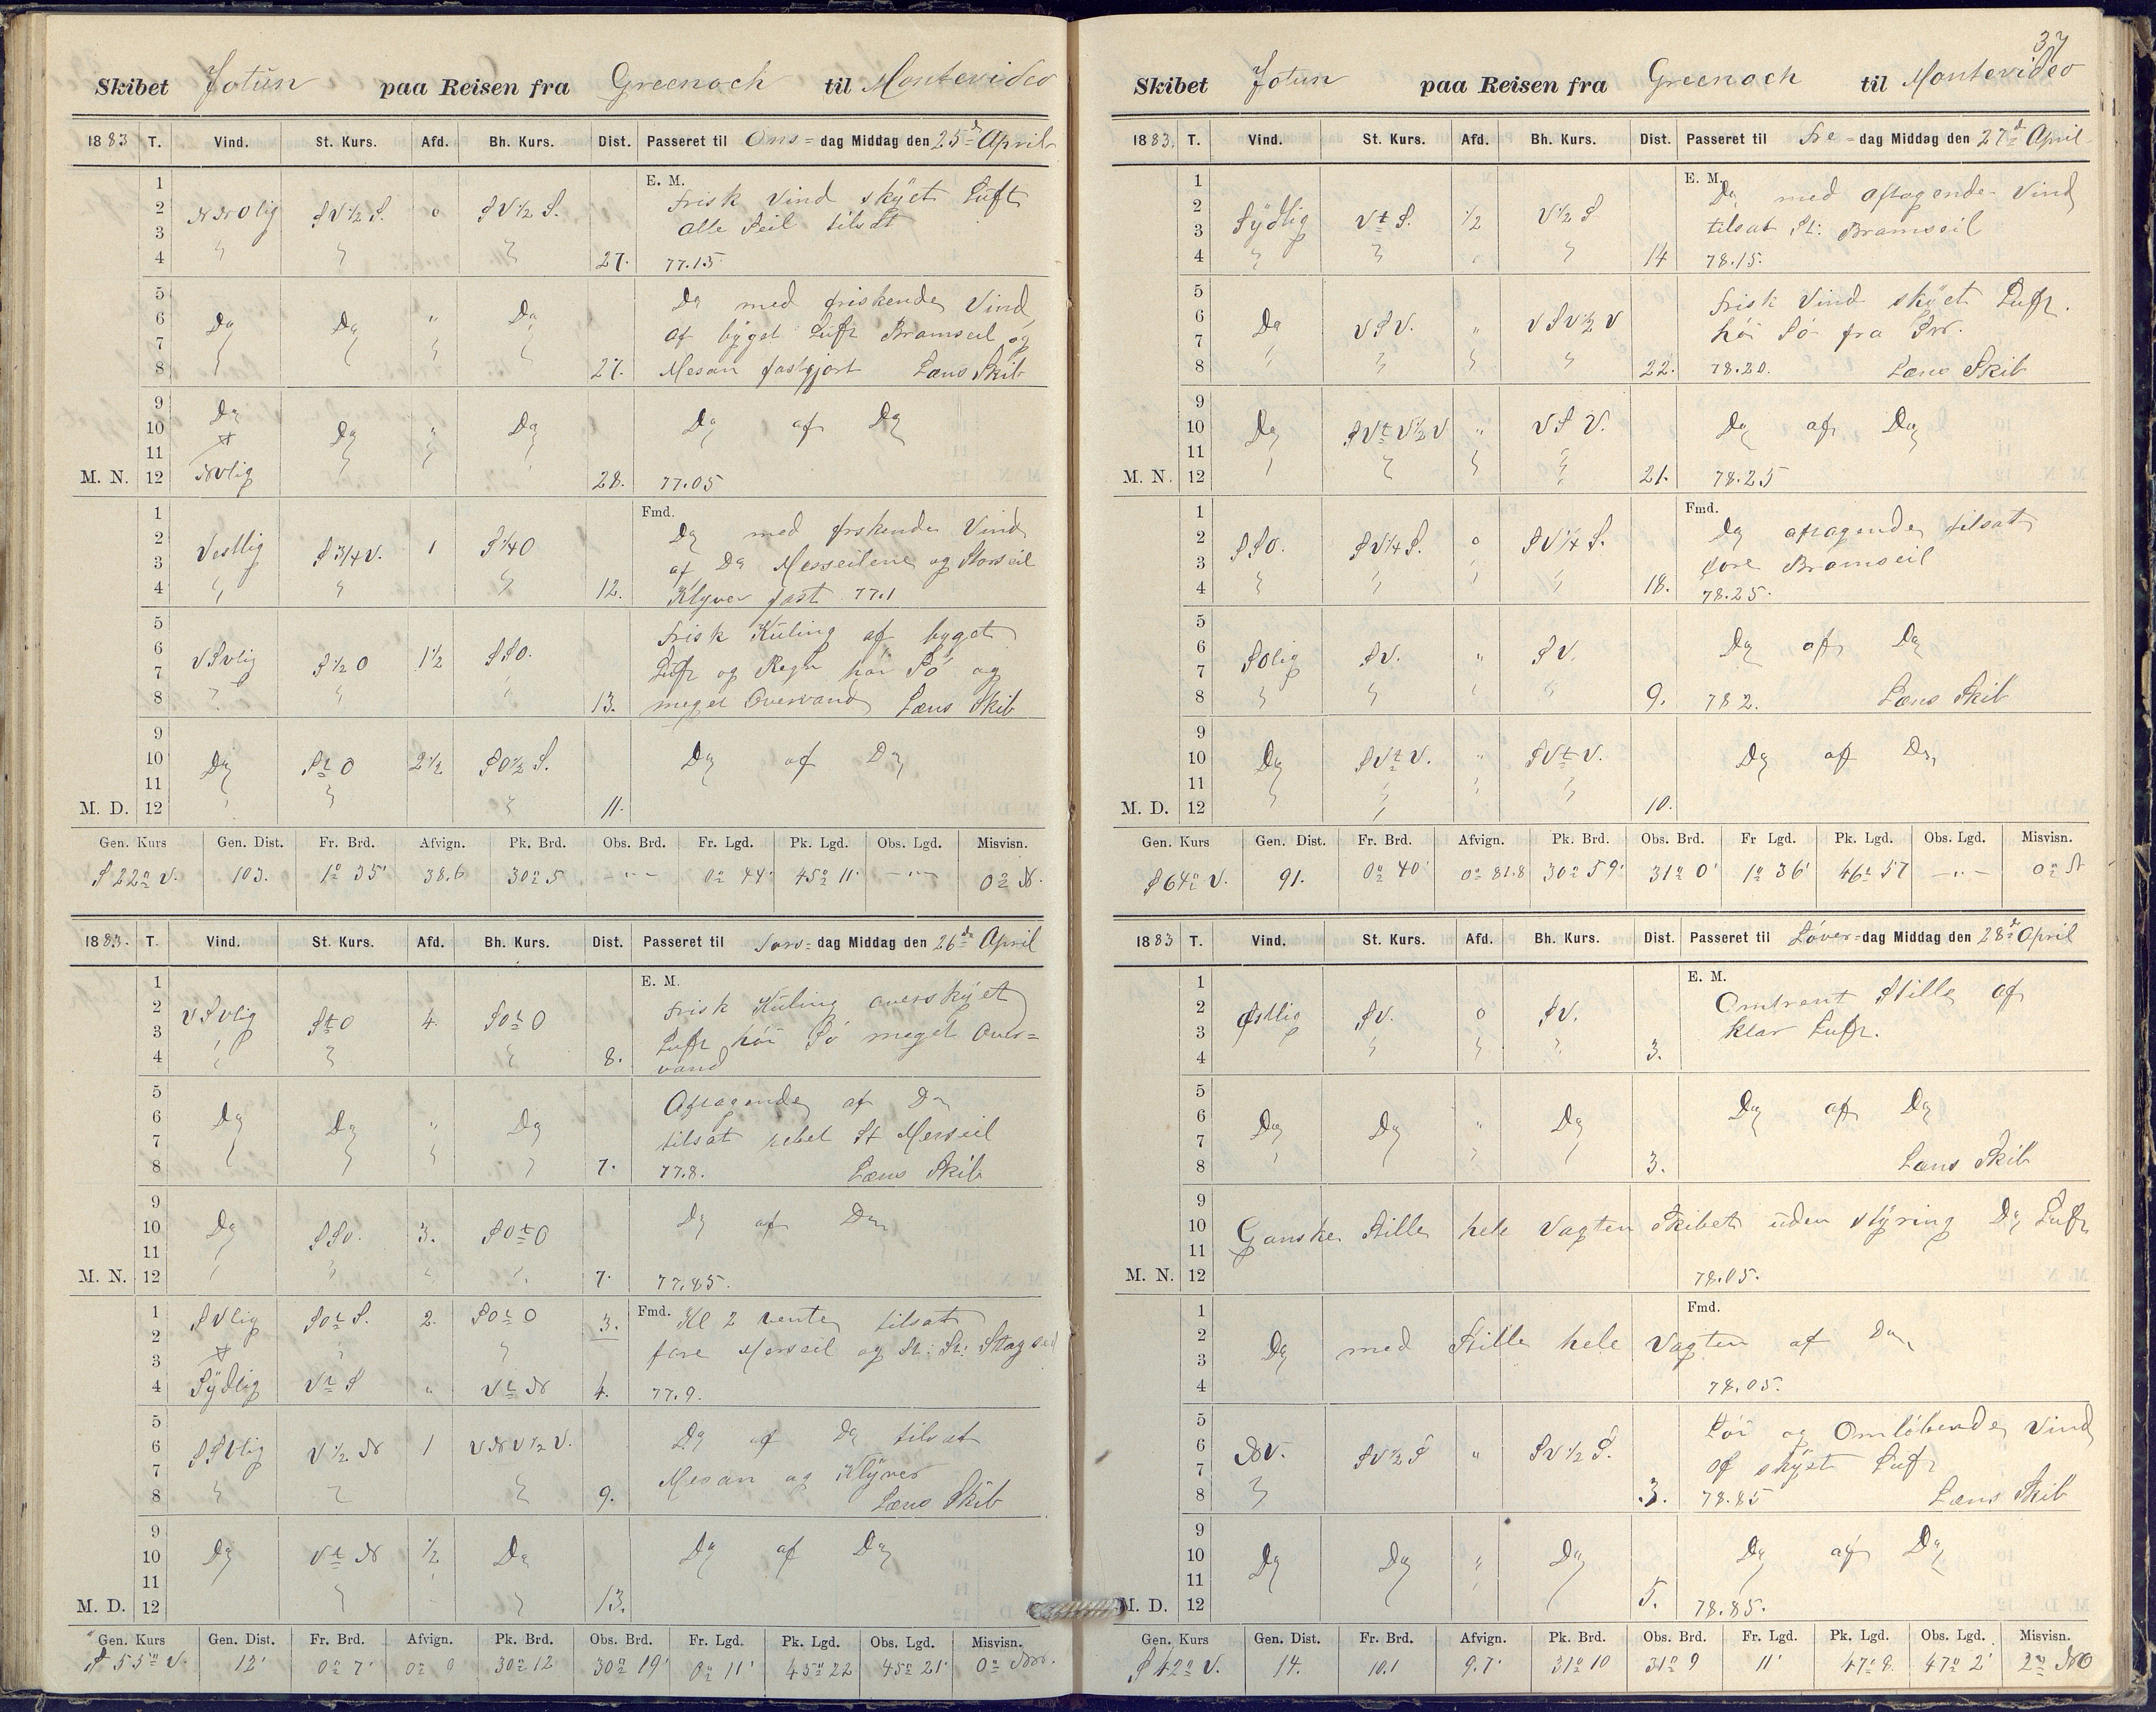 Skibet Jotun paa Reisen fra Greenock til Montevideo
1883 T. Vind. St. Kurs. Afd. Bh. Kurs. Dist. Passeret til Ons=dag Middag den 25de April
1 E. M.
2 NNOlig SV½S. 0 SV½S. Frisk Vind skyet Luft
3 alle Seil tilsat
4 27. 77.15
5 Do med friskende Vind
6 Do Do " Do af byget Luft Bramseil og
7
8 27. Mesan fastgjort Læns Skib
9 Do
10 Do " Do Do af Do
11
M. N. 12 NVlig 28. 77.05
1 Fmd.
2 Vestlig S3/4V. 1 S¼O Do med friskende Vind
3 af Do Mersseilene og Storseil
4 12. Klyver fast 77.1
5 Frisk Kuling af byget
6 VSVlig S½O 1½ SSO. Luft og Regn høi Sö og
7
8 13. meget Overvand Læns Skib
9
10 Do StO 2½ SO½S. Do af Do
11
M. D. 12 11.
Gen. Kurs Gen. Dist. Fr. Brd. Afvign. Pk. Brd. Obs. Brd. Fr. Lgd. Pk. Lgd. Obs. Lgd. Misvisn.
S 22° V. 103. 1° 35' 38.6 30° 5 - " - 0° 44' 45° 11' - " - 0° N.
1883. T. Vind. St. Kurs. Afd. Bh. Kurs. Dist. Passeret til Tors=dag Middag den 26de April
1 E. M.
2 VSVlig StO 4. SOtO Frisk Kuling overskyet
3 Luft høi Sö meget Over=
4 8. vand
5 Aftagende af Do
6 Do Do " Do
7 tilsat rebet St Merseil
8 7. 77.8. Læns Skib
9
10 Do SSO. 3. SOtO Do af Do
11
M. N. 12 7. 77.85.
1 SVlig SOtS. 2. SOtO 3. Fmd. Kl 2 vente tilsat
2 fore Merseil og St: St: Stagseil
3
4 Sydlig VtS " VtN 4. 77.9.
5 Do af Do tilsat
6 SSVlig V½N 1 VNV½V.
7 Mesan og Klyver
8 9. Læns Skib
9
10 Do VtN ½ Do Do af Do
11
M. D. 12 13.
Gen. Kurs Gen. Dist. Fr. Brd. Afvign. Pk. Brd. Obs. Brd. Fr. Lgd. Pk. Lgd. Obs. Lgd. Misvisn.
S 55° V. 12' 0° 7' 0° 9 30° 12 30° 19' 0° 11' 45° 22 45° 21'
37
Skibet Jotun paa Reisen fra Greenock til Montevideo
1883. T. Vind. St. Kurs. Afd. Bh. Kurs. Dist. Passeret til Fre=dag Middag den 27de April
1 E. M.
2 Do med aftagende Vind
3 Sydlig VtS. ½ V½S tilsat St: Bramseil
4 14 78.15.
5 Frisk Vind skyet Luft.
6 Do VSV. " VSV½V høi Sö fra
7
8 22. 78.20. Læns Skib
9
10 Do SVtV½V " VSV. Do af Do
11
M. N. 12 21. 78.25
1 Fmd.
2 SSO. SV¼S. 0 SV¼S. Do aftagende tilsat
3 fore Bramseil
4 18. 78.25.
5
6 SOlig SV. " SV. Do af Do
7
8 9. 78 2. Læns Skib
9
10 Do SVtV. " SVtV. Do af Do
11
M. D. 12 10.
Gen. Kurs Gen. Dist. Fr. Brd. Afvign. Pk. Brd. Obs. Brd. Fr Lgd. Pk. Lgd. Obs. Lgd. Misvisn.
S 64° V. 91. 0° 40' 0° 81.8 30° 59' 31° 0' 1° 36' 46° 57 - " - 0°
1883 T. Vind. St. Kurs. Afd. Bh. Kurs. Dist. Passeret til Löver=dag Middag den 28de April
1 E. M.
2 Østlig SV. 0 SV. Omtrent Stille af
3 klar Luft.
4 3.
5
6 Do Do " Do Do af Do
7
8 3. Læns Skib
9
10 Ganske Stille hele Vagten Skibet uden styring Do Luft
11
M. N. 12 78.05.
1 Fmd.
2 Do med Stille hele Vagten af Do
3
4 78.05.
5 Löi og Omlöbende Vind
6 NV. SV½S " SV½S. af skyet Luft
7
8 3. 78.85 Læns Skib
9
10 Do Do " Do Do af Do
11
M. D. 12 5. 78.85.
Gen. Kurs Gen. Dist. Fr. Brd. Afvign. Pk. Brd. Obs. Brd. Fr. Lgd. Pk. Lgd. Obs. Lgd. Misvisn.
S 42° V. 14. 10.1 9.7' 31° 10 31° 9 11' 47° 8 47° 2' 2° NO